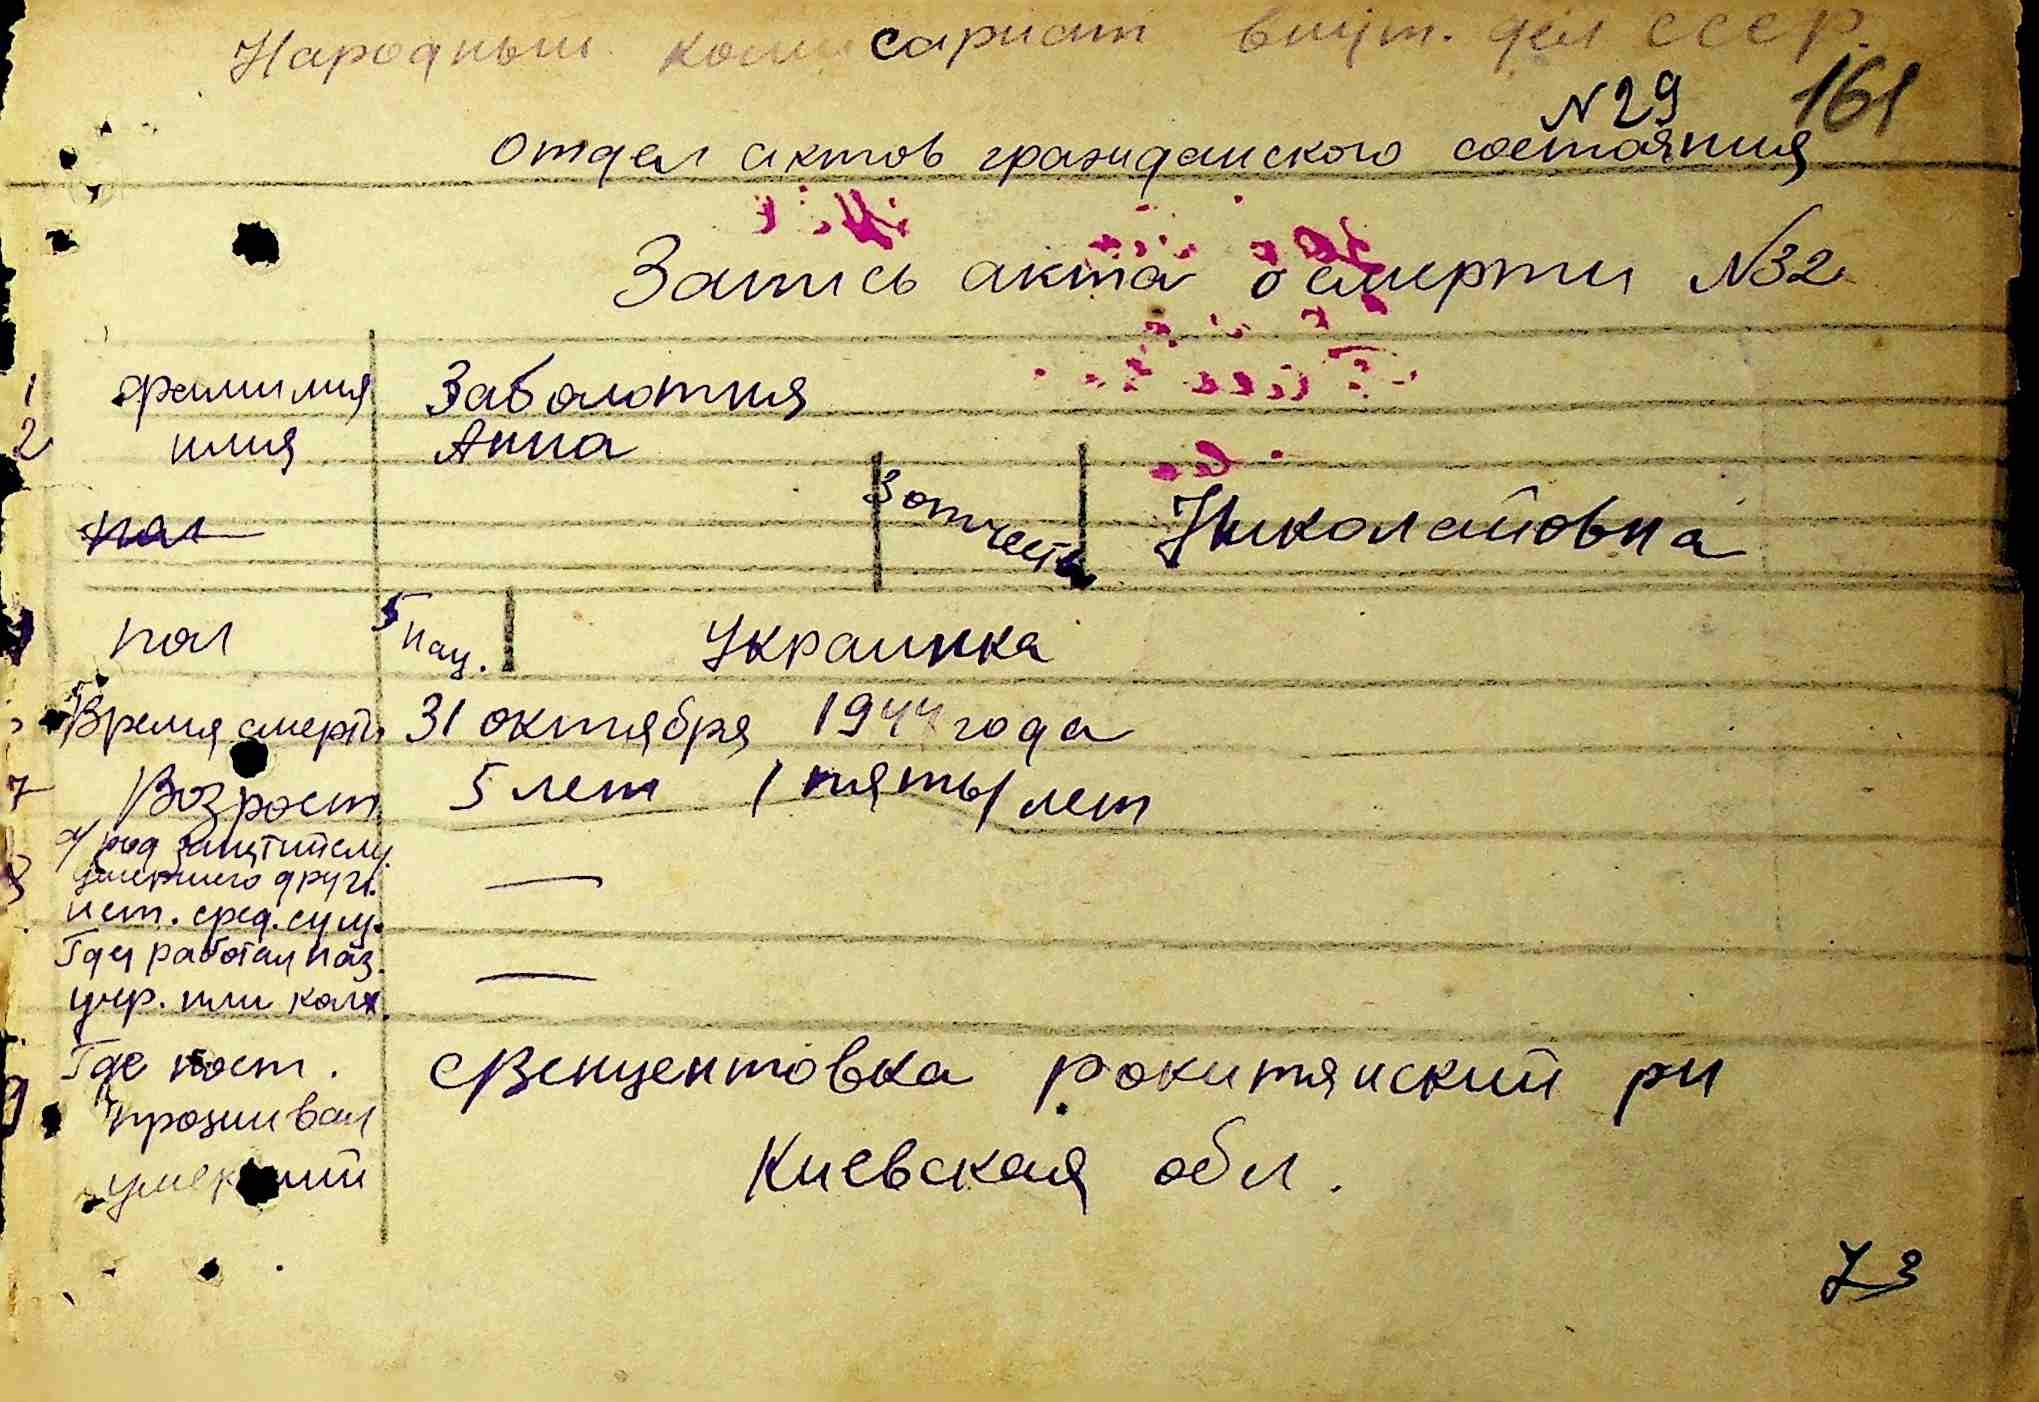 Народный комисариат внут. дел СССР.
N 29 161
Отдел актов гражданского состояния
Запись акта о смерти N32
1 фамилия Заболотня
2 имия Анна
пол 3 отчеств Николайовна
пол 5 нац. Украинка
Время смерти 31 октября 1944 года
7 Возрост 5 лет / пять / лет
род
умершего друг.
ист. сред. сущ.
Где работал наз.
учр. или колх.
Где пост. Венцентовка рокитянский рн
проживал
умерший Киевская обл.
73